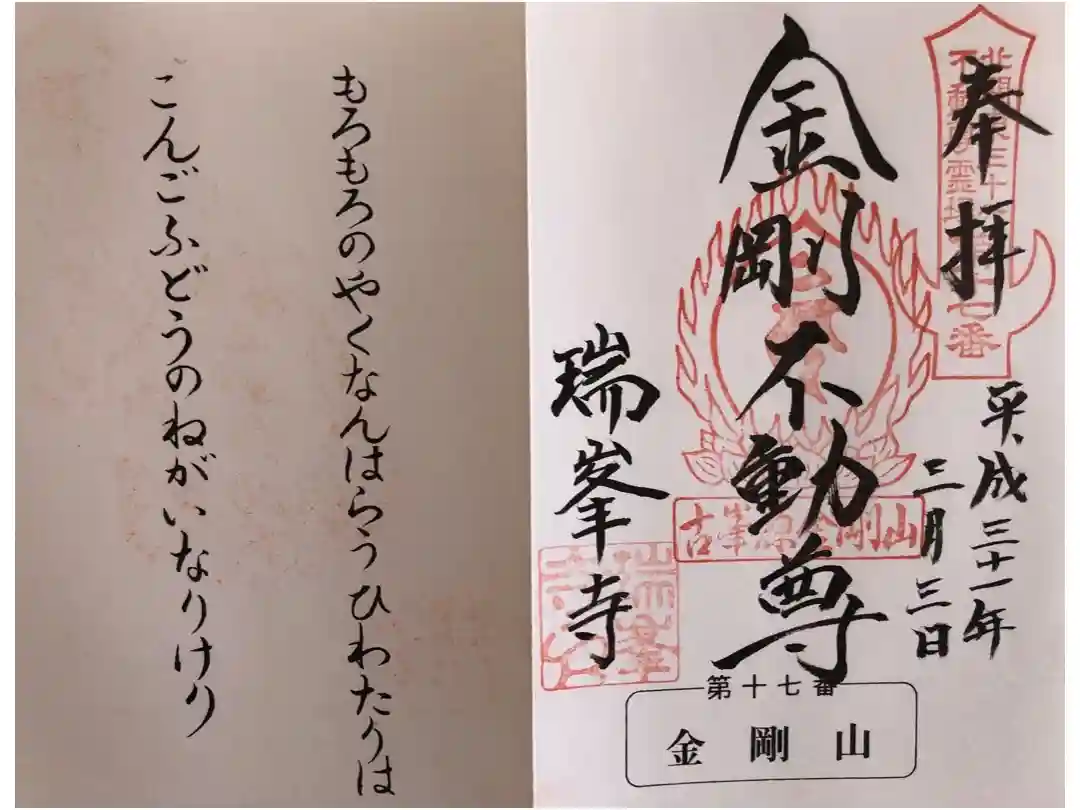 奉拝
平成三十一年
三月三日
金剛不動尊
瑞峯寺
古峯原金剛山
第十七番
金剛山
もろもろのやくなんはらうひわたりは
こんごふどうのねがいなりけり